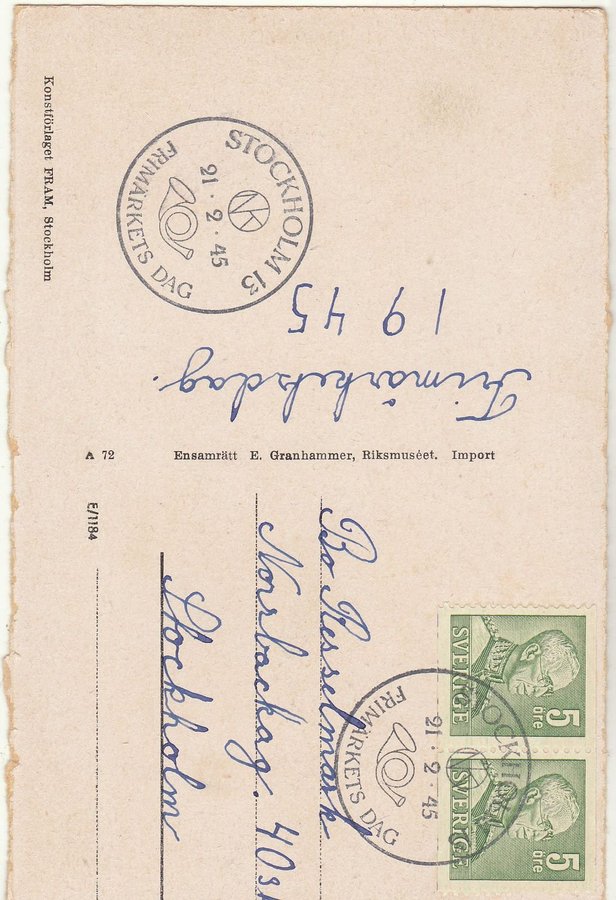 Konstförlaget FRAM, Stockholm
STOCKHOLM 13
NK
21 · 2 · 45
FRIMÄRKETS DAG
Frimärketsdag.
1945
A 72
Ensamrätt E. Granhammer, Riksmuséet. Import
E/1184
Bo Kesselmark
Norrbackag. 40
Stockholm
SVERIGE
5
ÖRE
SVERIGE
5
ÖRE
STOCKHOLM
NK
21 · 2 · 45
FRIMÄRKETS DAG